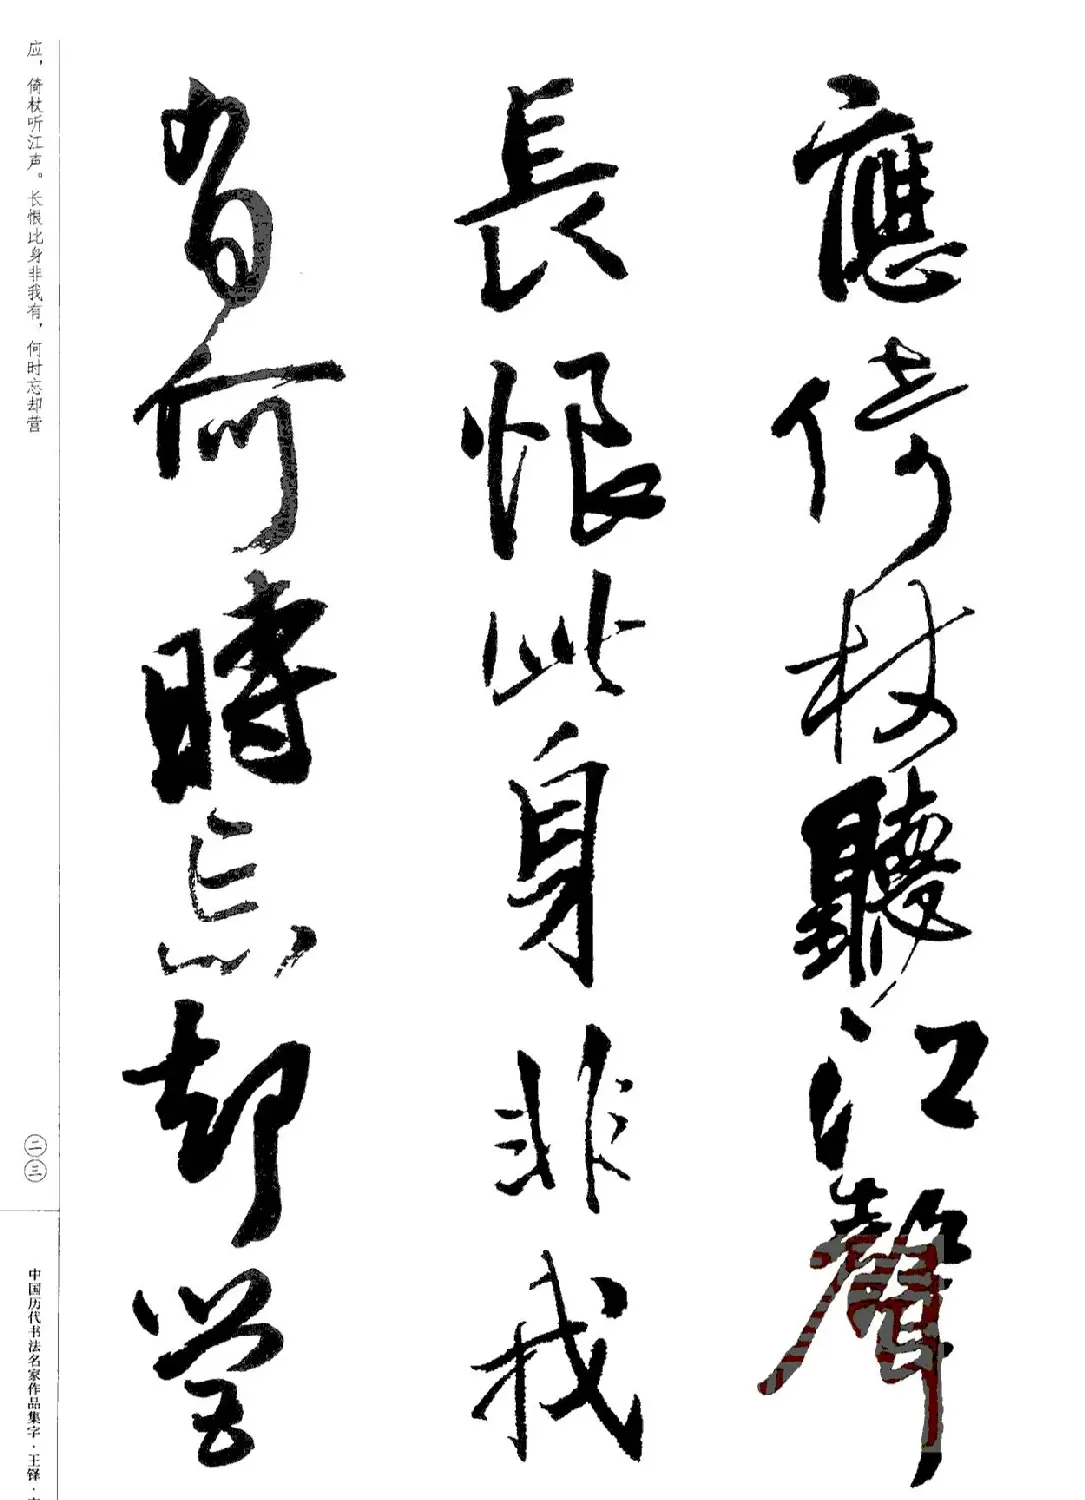 應倚杖聽江聲
長恨此身非我
有何時忘却營
应，倚杖听江声。长恨此身非我有，何时忘却营
二三
中国历代书法名家作品集字·王铎·